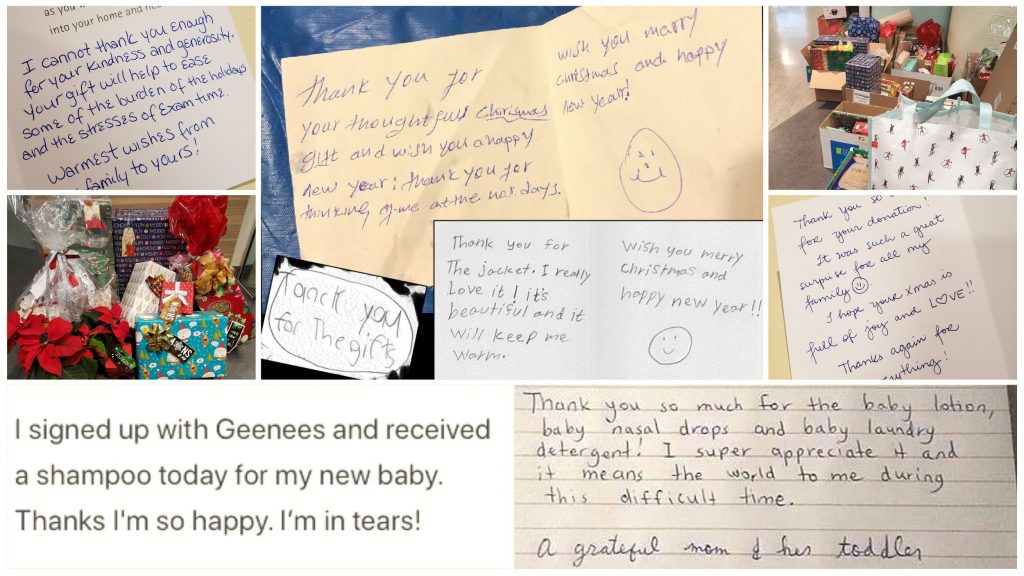 as you
into your home and
I cannot thank you enough
for your kindness and generosity.
Your gift will help to ease
some of the burden of the holidays
and the stresses of Exam time.
Warmest wishes from
family to yours!
Thank you for
your thoughtfull Chirismas
gift and wish you a happy
new year! Thank you for
thinking of me at the holidays.
wish you marry
christmas and happy
new year!
Thank you for
The jacket. I really
Love it! it's
beautiful and it
will keep me
warm.
Wish you merry
christmas and
happy new year!!
Tanck you
for The gifts
Thank you so
for your donation!
It was such a great
surprise for all my
family
I hope your Xmas is
full of joy and LOVE!!
Thanks again for
I signed up with Geenees and received
a shampoo today for my new baby.
Thanks I'm so happy. I'm in tears!
Thank you so much for the baby lotion,
baby nasal drops and baby laundry
detergent! I super appreciate it and
it means the world to me during
this difficult time.
A grateful mom & her toddler